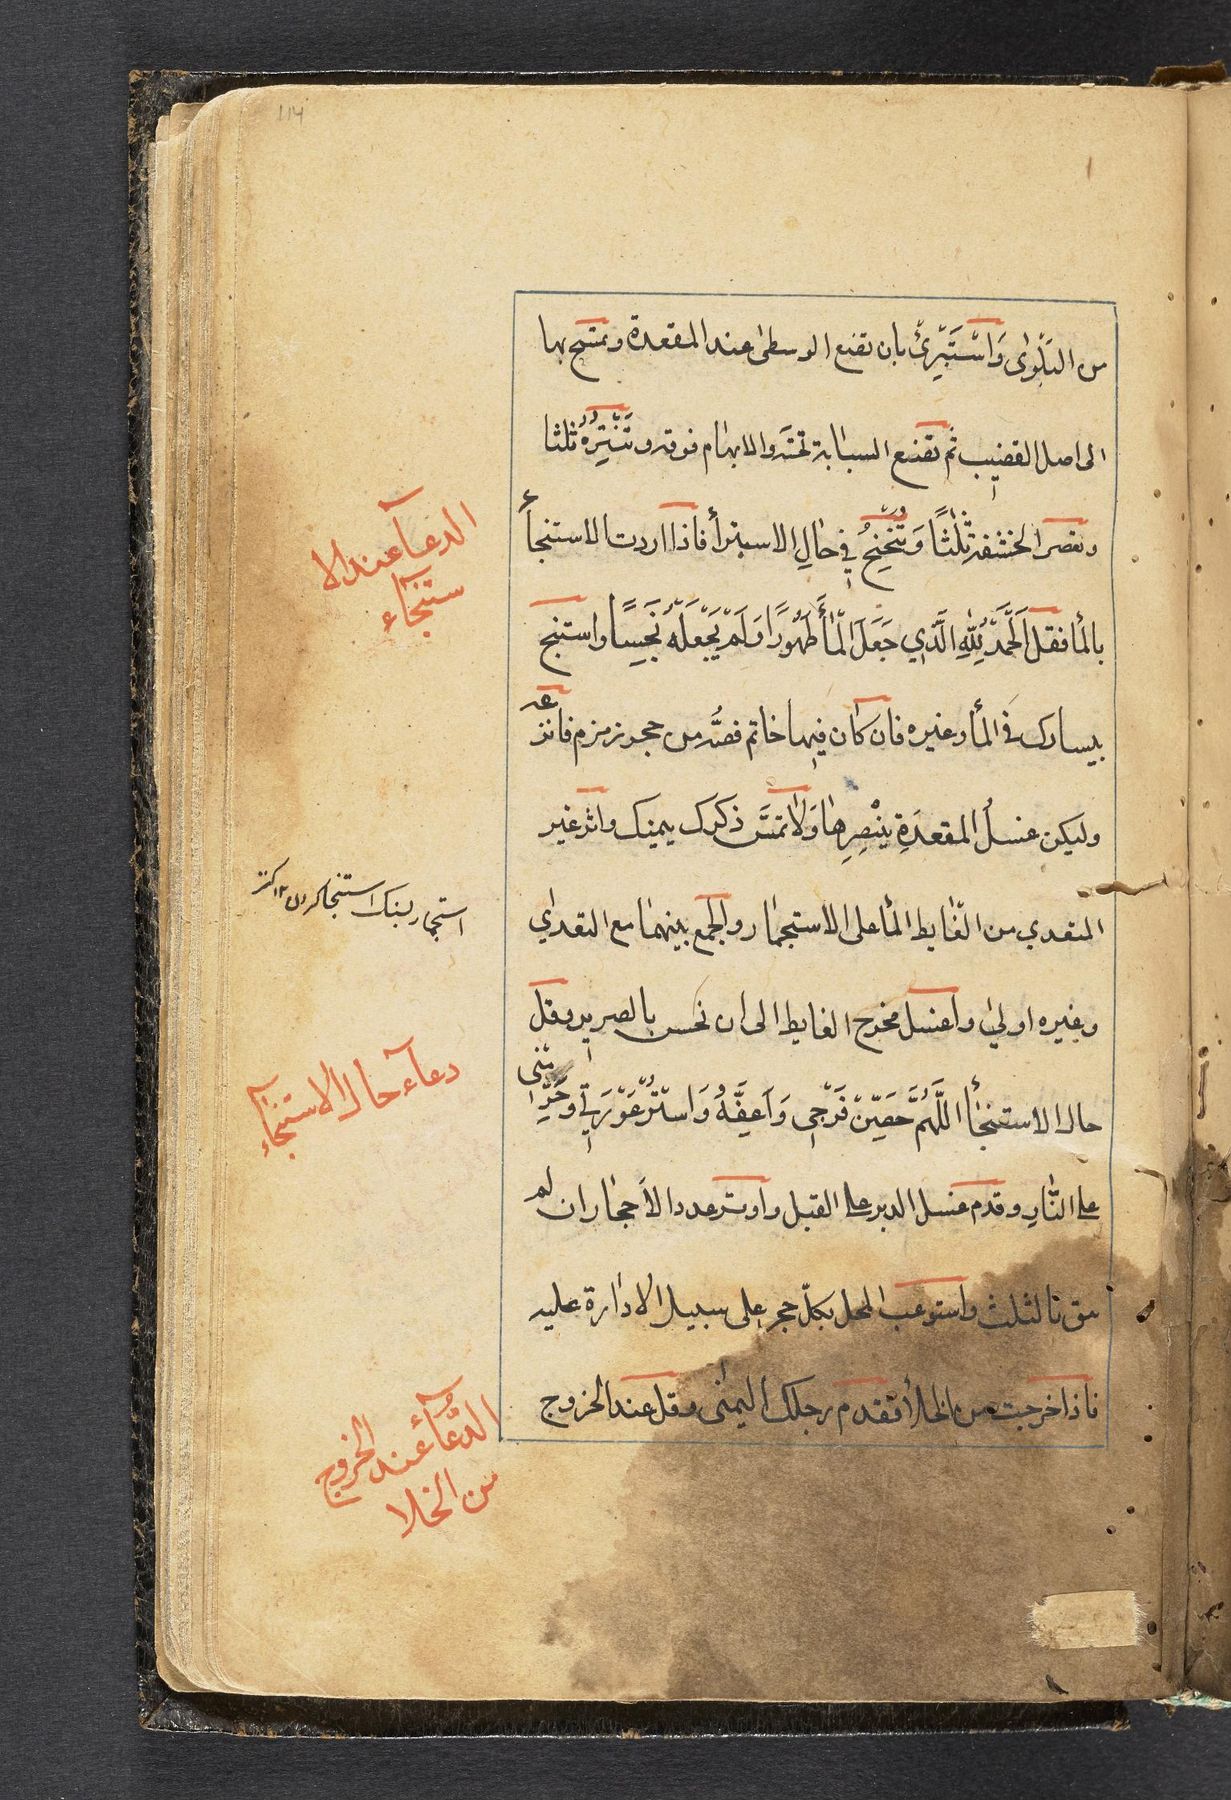 114
من البلوى وَاسْتَبْرِئْ بان تضع الوسطى عند المقعدة وتمسح بها
الى اصل القضيب ثم تضع السبابة تحته والابهام فوقه وتَنْتِرُهُ ثلثا
وتعصر الحشفة ثَلٰثًا وَتُنَحْنِحُ في حالِ الاستبرأ فاذا اردت الاستنجأ
بالمأ فقل اَلْحَمْدُ لِلّٰهِ الَّذِي جَعَلَ الْمَأَ طَهُورًا وَلَمْ يَجْعَلْهُ نَجِسًا واستنج
بيسارك في المأ وغيره فان كان فيها خاتم فصُّه من حجر زمزم فانزعه
وليكن غسلُ المقعدَةِ بِبِنْصِرِهٰا وَلاٰ تمسَّ ذكرك بيمينك واثر غير
المتعدي من الغٰايط المأ على الاستجمٰار والجمع بينهمٰا مع التعدٰي
وغيره اولىٰ واغسل مخرج الغايط الى ان تحس بالصرير وقل
حال الاستنجأ اللَّهُمَّ حَصِّنْ فَرْجي وَاَعِفَّهُ وَاسْتُرْ عَوْرَتي وَحَرِّمْنى
على النّٰارِ وقدم غسل الدبر على القبل واوتر عدد الاحجٰار ان لم
ينق بالثلٰث واستوعب المحل بكلّ حجر على سبيل الادٰارة عليه
فاذا خرجت من الخلأ فقدم رجلك اليمنٰى وقل عند الخروج
الدعآ عند الا
ستنجآء
استجمار بسنك استنجا كردن ١٢ كنز
دعآء حال الاستنجآء
الدُّعآء عند الخروج
من الخلا